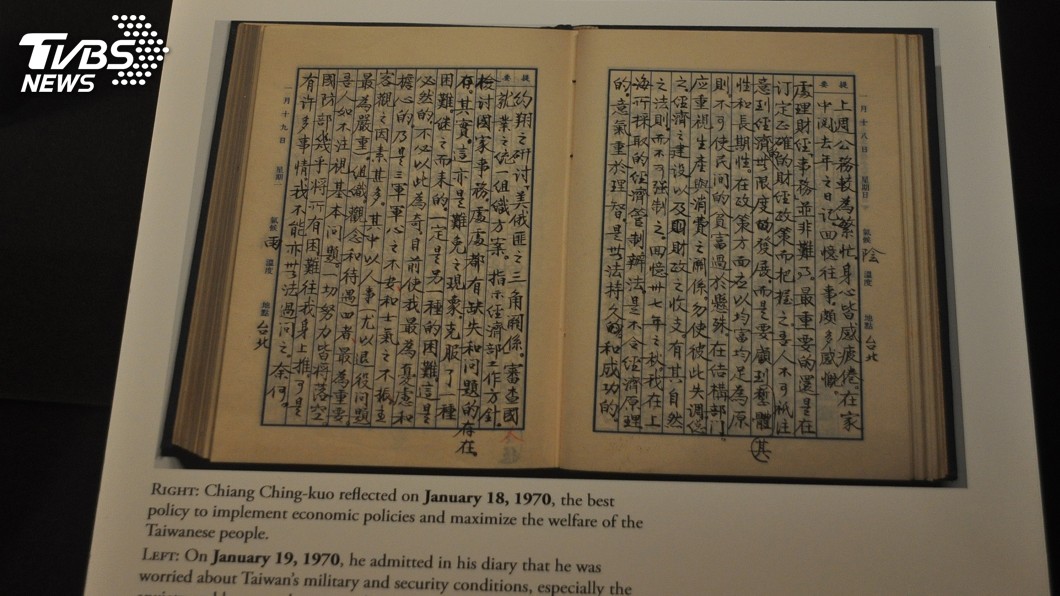 TVBS
NEWS
一月十八日 星期日 氣候 陰 溫度 地點 台北
提要
上週公務較為繁忙,身心皆感疲倦。在家
中閱去年之日記,回憶往事,頗多感慨。
處理財經事務並非難乃最重要的還是在
訂定正確的財經政策而把握之。吾人不可祇注
意到經濟無限度的發展,而是要顧到整體
性和長期性。在政策方面应以均富均足為原
則不可使民間的貧富過於懸殊,在結構部門
其
应重視生產與消費之關係,勿使彼此失調,
之經濟之建設以及國財政之收支有其自然
之法則,而不可強制之。回憶卅七年之秋,我在上
海所採取的經濟管制辦法是不合經濟原理
的,意氣重於理智,是無法持久的和成功的。
提要
約翔之研討,美俄匪之三角關係。審查國
就業之統一組織方案。指示經濟部工作方針。
檢討國家事務,處處都有缺失和問題的存在。
存其實。這亦是難免之現象,克服了一種
困難繼之而來的一定是另一種的困難,這是
必然的,不必以此為奇。目前使我最為憂慮和
擔心的乃是三軍軍心之不安和士氣之不振,主
客觀之因素甚多。其中以人事(尤以退役)問題
最為嚴重。組織觀念和待遇四者最為重要
吾人如不注視基本問題,一切努力皆將落空
國防部幾乎將所有困難往我身上推,可是
有許多事情我不能亦無法過問之,奈何。
一月十九日 星期一 氣候 雨 溫度 地點 台北
RIGHT: Chiang Ching-kuo reflected on January 18, 1970, the best
policy to implement economic policies and maximize the welfare of the
Taiwanese people.
LEFT: On January 19, 1970, he admitted in his diary that he was
worried about Taiwan's military and security conditions, especially the